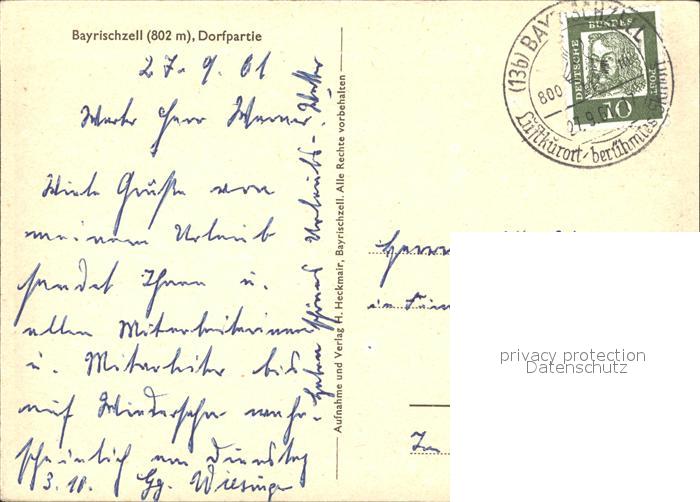 Bayrischzell (802 m), Dorfpartie
27.9.61
Werte Herr Werner.
Viele Grüße von
meinem Urlaub
sendet Ihnen u.
allen Mitarbeiterinnen
u. Mitarbeiter bis
auf Wiedersehn wahr-
scheinlich am Dienstag
3.10. Gg. Wiesinger
Haben schönes Urlaubs-Wetter
Aufnahme und Verlag H. Heckmair, Bayrischzell. Alle Rechte vorbehalten
(13b) BAYRISCHZELL
800
27.9.61
Luftkurort - berühmtes
DEUTSCHE BUNDES POST
10
Herrn
in
privacy protection
Datenschutz